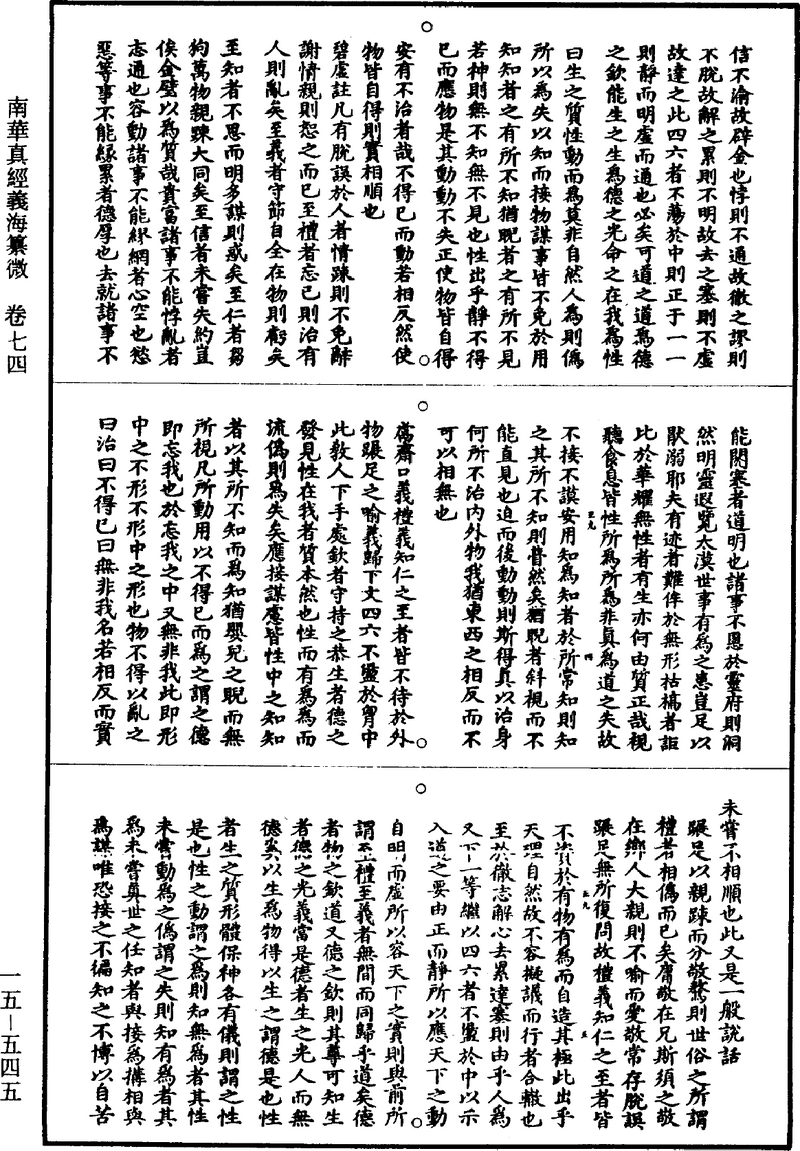 南華真經義海纂微 卷七四
一五—五四五
信不渝故辟金也悖則不通故徹之謬則
不脫故解之累則不明故去之塞則不虛
故達之此四六者不蕩於中則正于一一
則靜而明虛而通也必矣可道之道爲德
之欽能生之生爲德之光命之在我爲性
曰生之質性動而爲莫非自然人爲則僞
所以爲失以知而接物謀事皆不免於用
知知者之有所不知猶睨者之有所不見
若神則無不知無不見也性出乎靜不得
已而應物是其動動不失正使物皆自得
安有不治者哉不得已而動若相反然使
物皆自得則實相順也
碧虛註凡有脫誤於人者情踈則不免辭
謝情親則恕之而已至禮者忘已則治有
人則亂矣至義者守節自全在物則虧矣
至知者不思而明多謀則惑矣至仁者芻
狗萬物親踈大同矣至信者未嘗失約豈
俟金璧以爲質哉貴富諸事不能悖亂者
志通也容動諸事不能繆綱者心空也慾
惡等事不能緣累者德厚也去就諸事不
能閡塞者道明也諸事不慁於靈府則洞
然明靈遐覽太漠世事有爲之患豈足以
猒溺耶夫有迹者難侔於無形枯槁者詎
比於華耀無性者有生亦何由質正哉視
聽食息皆性所爲所爲非眞爲道之失故
不接不謨安用知爲知者於所常知則知
之其所不知則瞢然矣猶睨者斜視而不
能直見也迫而後動動則斯得眞以治身
何所不治内外物我猶東西之相反而不
可以相無也
鬳齋口義禮義知仁之至者皆不待於外
物蹍足之喻義歸下文四六不盪於胷中
此敎人下手處欽者守持之恭生者德之
發見性在我者質本然也性而有爲爲而
流僞則爲失矣應接謀慮皆性中之知知
者以其所不知而爲知猶嬰兒之睨而無
所視凡所動用以不得已而爲之謂之德
即忘我也於忘我之中又無非我此即形
中之不形不形中之形也物不得以亂之
曰治曰不得已曰無非我名若相反而實
未嘗不相順也此又是一般說話
蹍足以親踈而分敬驁則世俗之所謂
禮者相僞而已矣庸敬在兄斯須之敬
在鄉人大親則不喻而愛敬常存脫誤
蹍足無所復問故禮義知仁之至者皆
不資於有物有爲而自造其極此出乎
天理自然故不容擬議而行者合轍也
至於徹志解心去累達塞則由乎人爲
又下一等繼以四六者不盪於中以示
入道之要由正而靜所以應天下之動
自明而虛所以容天下之實則與前所
謂至禮至義者無間而同歸乎道矣德
者物之欽道又德之欽則其尊可知生
者德之光義當是德者生之光人而無
德奚以生爲物得以生之謂德是也性
者生之質形體保神各有儀則謂之性
是也性之動謂之爲則知無爲者其性
未嘗動爲之僞謂之失則知有爲者其
爲未嘗眞世之任知者與接爲搆相與
爲謀唯恐接之不徧知之不博以自苦